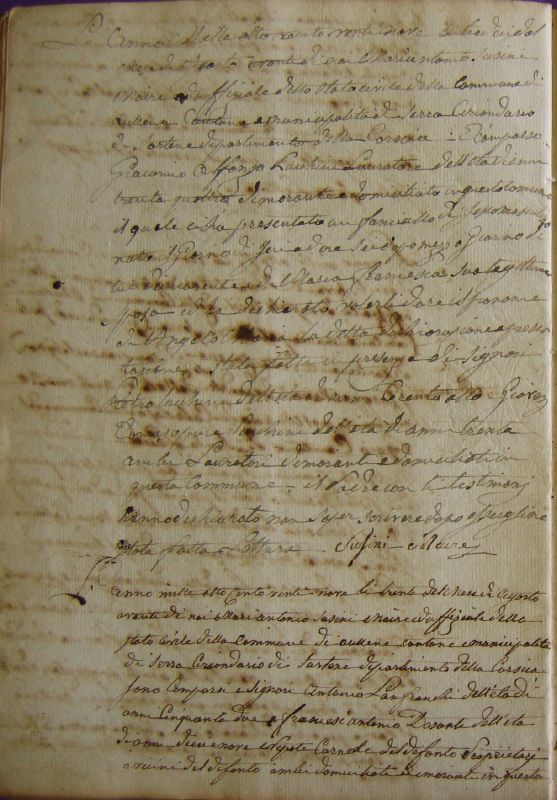 L'Anno Mille otto cento venti nove li tredici del
avanti di noi Mariantonio Susini
Maire ed uffiziale dello stato civile della Commune di
aullene Cantone e municipalità di Serra Circondario
di Sartene dipartimento della Corscia è Comparso
Giacomo Alfonzo Lucchini Lauratore dell'età di anni
trenta quattro dimorante e domiciliato in questa Comune
il quale ci ha presentato un fanciullo di sesso mascolino
nato il Giorno di Jeri a ore sei dopo mezzo Giorno di
lui dichiarante e di Maria Francesca sua legittima
sposa ed ha dichiarato volerli dare il pronome
di Angelo Maria la detta dichiarazione e presen
tazione è stata fatta in presenza di Signori
Pietro Lucchini dell'età di anni trenta otto e Giovan
Lucchini dell'età di anni trenta
ambi Lauratori dimoranti e domiciliati in
questa Commune il Padre con li testimonj
hanno dichiarato non saper scrivere dopo essergliene
stata fatta Lettura Susini Maire
L'anno mille otto Cento venti-nove li trenta del Mese di Agosto
avanti di noi Mariantonio Susini Maire ed uffiziale dello
stato civile della Commune di aullene cantone e municipalità
di Serra Circondario di Sartene dipartimento della Corscia
sono Comparsi e Signori Antonio Lanfranchi dell'età di
anni Cinquanta due e francescantonio dell'età
di anni dieci nove Nepote Carnale del defonto e Proprietarj
e vicini del defonto ambi domiciliati e dimoranti in questa